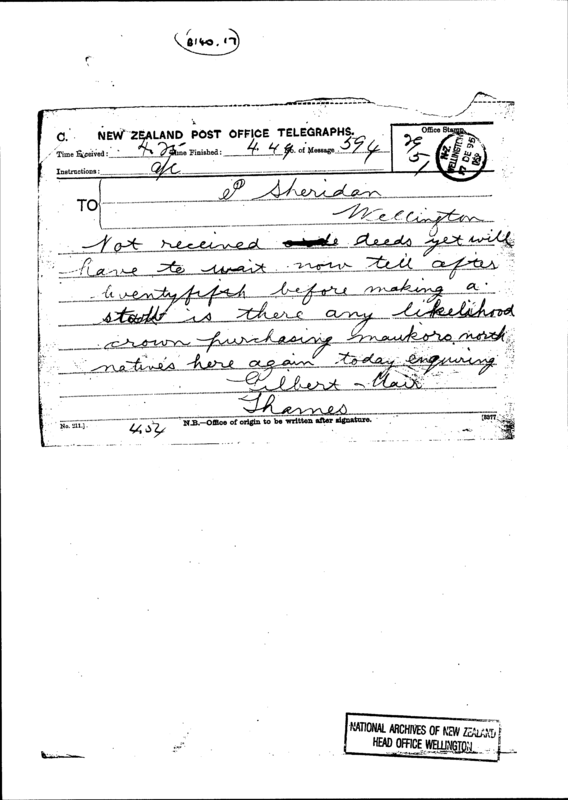 B140.17
C. NEW ZEALAND POST OFFICE TELEGRAPHS.
Time Received: 4.25 Time Finished: 4.49 No. of Message 594
Office Stamp
29/5/
N.Z. WELLINGTON 17 DE 95
Instructions:
TO P Sheridan
Wellington
Not received deeds yet will
have to wait now till after
twentyfifth before making a
start is there any likelihood
crown purchasing maukoro north
natives here again today enquiring
Gilbert Mair
Thames
No. 211.] 4.54 N.B.—Office of origin to be written after signature. [5377
NATIONAL ARCHIVES OF NEW ZEALAND
HEAD OFFICE WELLINGTON